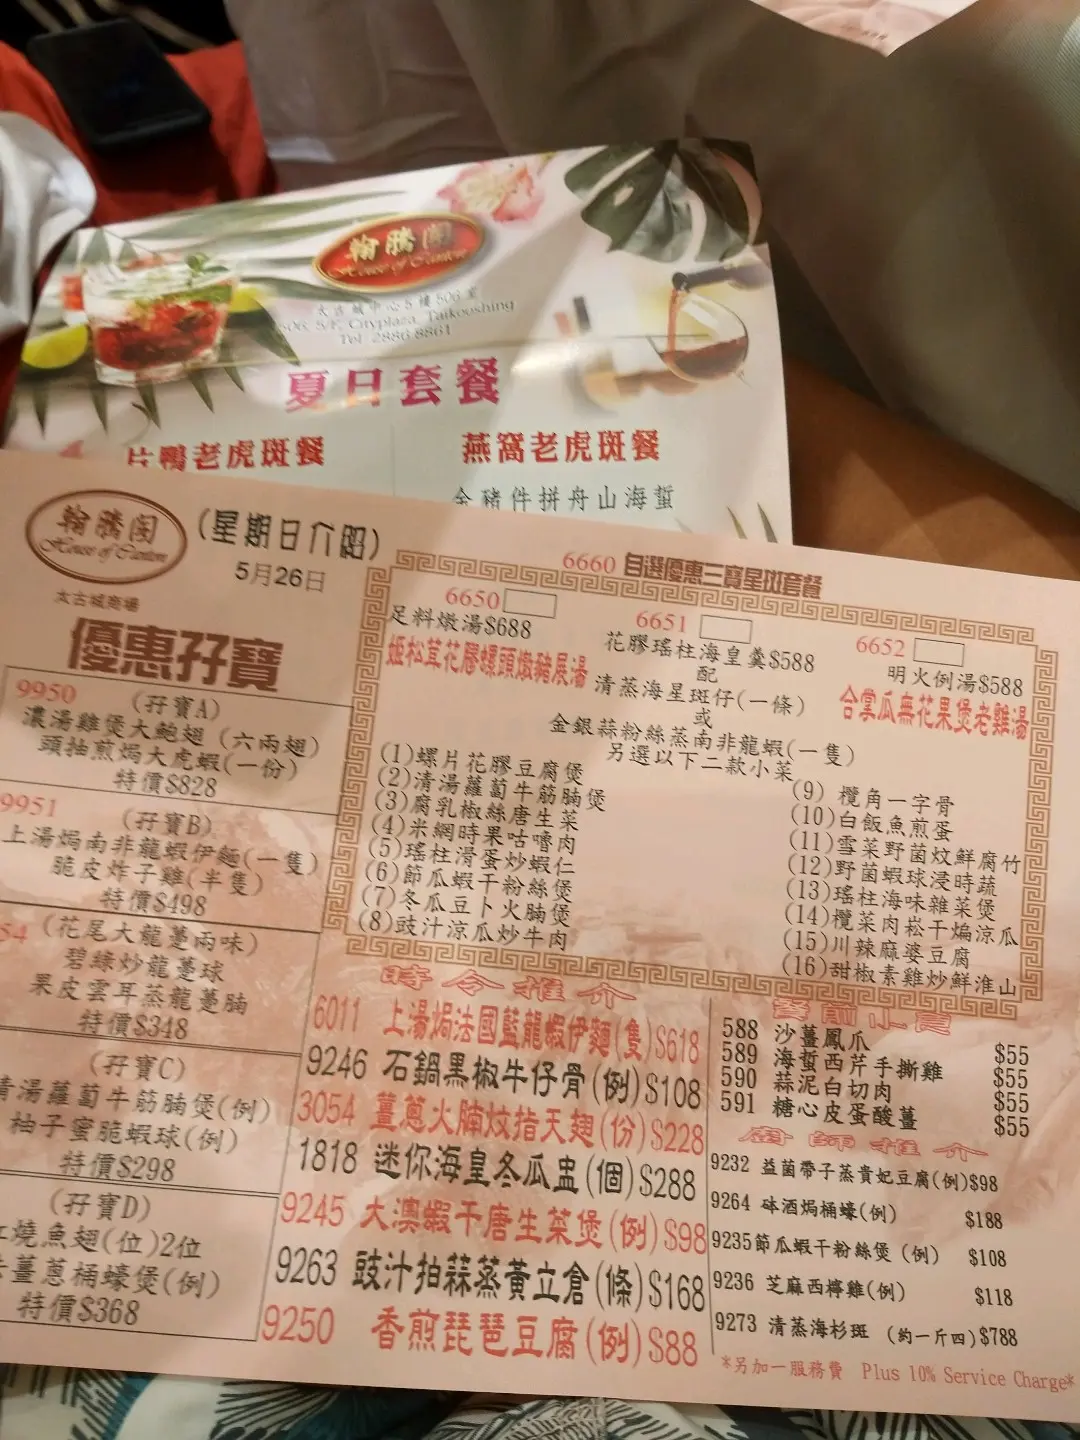 翰騰閣
House of Canton
太古城中心5樓506室
506, 5/F, Cityplaza, Taikooshing
Tel: 2886 8861
夏日套餐
片鴨老虎斑餐
燕窩老虎斑餐
金豬件拼舟山海蜇
翰騰閣
House of Canton
太古城商場
(星期日介紹)
5月26日
優惠孖寶
9950 (孖寶A)
濃湯雞煲大鮑翅 (六兩翅)
頭抽煎焗大虎蝦(一份)
特價$828
9951 (孖寶B)
上湯焗南非龍蝦伊麵(一隻)
脆皮炸子雞(半隻)
特價$498
54 (花尾大龍躉兩味)
碧綠炒龍躉球
果皮雲耳蒸龍躉腩
特價$348
(孖寶C)
清湯蘿蔔牛筋腩煲(例)
柚子蜜脆蝦球(例)
特價$298
(孖寶D)
紅燒魚翅(位)2位
薑蔥桶蠔煲(例)
特價$368
6660 自選優惠三寶星斑套餐
6650
足料燉湯$688
姬松茸花膠螺頭燉豬展湯
6651
花膠瑤柱海皇羹$588
6652
明火例湯$588
合掌瓜無花果煲老雞湯
配
清蒸海星斑仔(一條)
或
金銀蒜粉絲蒸南非龍蝦(一隻)
另選以下二款小菜
(1)螺片花膠豆腐煲
(2)清湯蘿蔔牛筋腩煲
(3)腐乳椒絲唐生菜
(4)米網時果咕嚕肉
(5)瑤柱滑蛋炒蝦仁
(6)節瓜蝦干粉絲煲
(7)冬瓜豆卜火腩煲
(8)豉汁涼瓜炒牛肉
(9) 欖角一字骨
(10)白飯魚煎蛋
(11)雪菜野菌炆鮮腐竹
(12)野菌蝦球浸時蔬
(13)瑤柱海味雜菜煲
(14)欖菜肉崧干煸涼瓜
(15)川辣麻婆豆腐
(16)甜椒素雞炒鮮淮山
時令推介
6011 上湯焗法國藍龍蝦伊麵(隻)$618
9246 石鍋黑椒牛仔骨(例)$108
3054 薑蔥火腩炆指天翅(份)$228
1818 迷你海皇冬瓜盅(個)$288
9245 大澳蝦干唐生菜煲(例)$98
9263 豉汁拍蒜蒸黃立倉(條)$168
9250 香煎琵琶豆腐(例)$88
餐前小食
588 沙薑鳳爪 $55
589 海蜇西芹手撕雞 $55
590 蒜泥白切肉 $55
591 糖心皮蛋酸薑 $55
廚師推介
9232 益菌帶子蒸貴妃豆腐(例)$98
9264 砵酒焗桶蠔(例) $188
9235節瓜蝦干粉絲煲 (例) $108
9236 芝麻西檸雞(例) $118
9273 清蒸海杉斑 (約一斤四)$788
*另加一服務費 Plus 10% Service Charge*